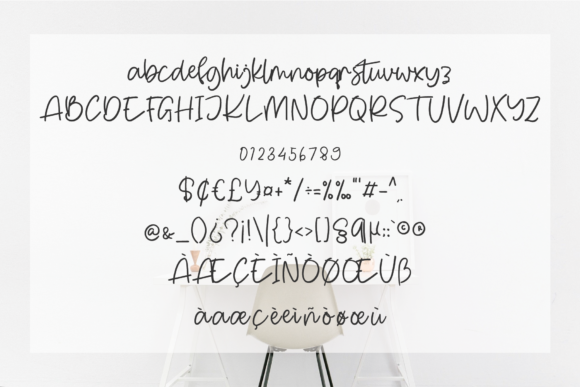 abcdefghijklmnopqrstuvwxyz
ABCDEFGHIJKLMNOPQRSTUVWXYZ
0123456789
$¢€£¥¤+*/÷=%‰"'#-^,.
@&_()¿?¡!\|{}<>[]§¶µ::`©®
ÀÆÇÈÌÑÒØŒÙß
àaæçèeìñòøœù